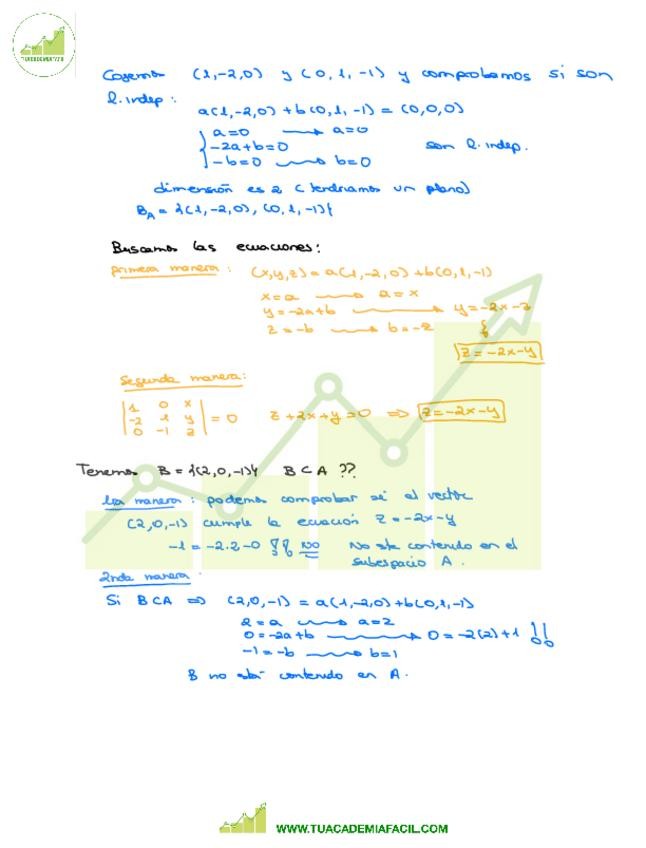 TUACADEMIAFACIL
Cogemos (1,-2,0) y (0,1,-1) y comprobamos si son
l. indep:
a(1,-2,0)+b(0,1,-1)=(0,0,0)
a=0 → a=0
-2a+b=0 son l. indep.
-b=0 → b=0
dimensión es 2 (tendríamos un plano)
B_A = {(1,-2,0), (0,1,-1)}
Buscamos las ecuaciones:
primera manera: (x,y,z)=a(1,-2,0)+b(0,1,-1)
x=a → a=x
y=-2a+b → y=-2x-z
z=-b → b=-z
z=-2x-y
Segunda manera:
1 0 x
-2 1 y =0 z+2x+y=0 ⇒ z=-2x-y
0 -1 z
Tenemos B={(2,0,-1)} B⊂A ??
1ra manera: podemos comprobar si el vector
(2,0,-1) cumple la ecuación z=-2x-y
-1=-2·2-0 ¡¡ NO No está contenido en el
subespacio A.
2nda manera:
Si B⊂A ⇒ (2,0,-1)=a(1,-2,0)+b(0,1,-1)
2=a → a=2
0=-2a+b → 0=-2(2)+1 !!
-1=-b → b=1
B no está contenido en A.
WWW.TUACADEMIAFACIL.COM